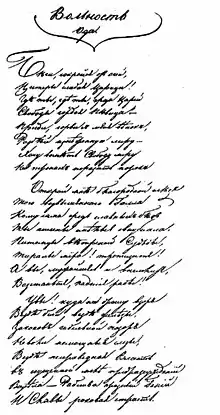 Вольность
Ода
Беги, сокройся отъ очей,
Цитеры слабая Царица!
Гдѣ ты, гдѣ ты, гроза Царей
Свободы гордая Пѣвица —
Приди, сорви съ меня вѣнокъ,
Разбей изнѣженную лиру —
Хочу воспѣть Свободу миру
На тронахъ поразить порокъ
Открой мнѣ благородный слѣдъ
Того возвышеннаго Галла
Кому сама средь славныхъ бѣдъ
Ты гимны смѣлые внушала.
Питомцы вѣтренной Судьбы,
Тираны мира! трепещите!
А вы, мужайтесь и внемлите,
Возстаньте, падшiе рабы!
Увы! куда ни брошу взоръ
Вездѣ бичи, вездѣ желѣзы,
Законовъ гибельный позоръ
Неволи немощныя слезы,
Вездѣ неправедная Власть
Въ сгущенной мглѣ предразсужденiй
Возсѣла — Рабства грозный Генiй
И Славы роковая страсть